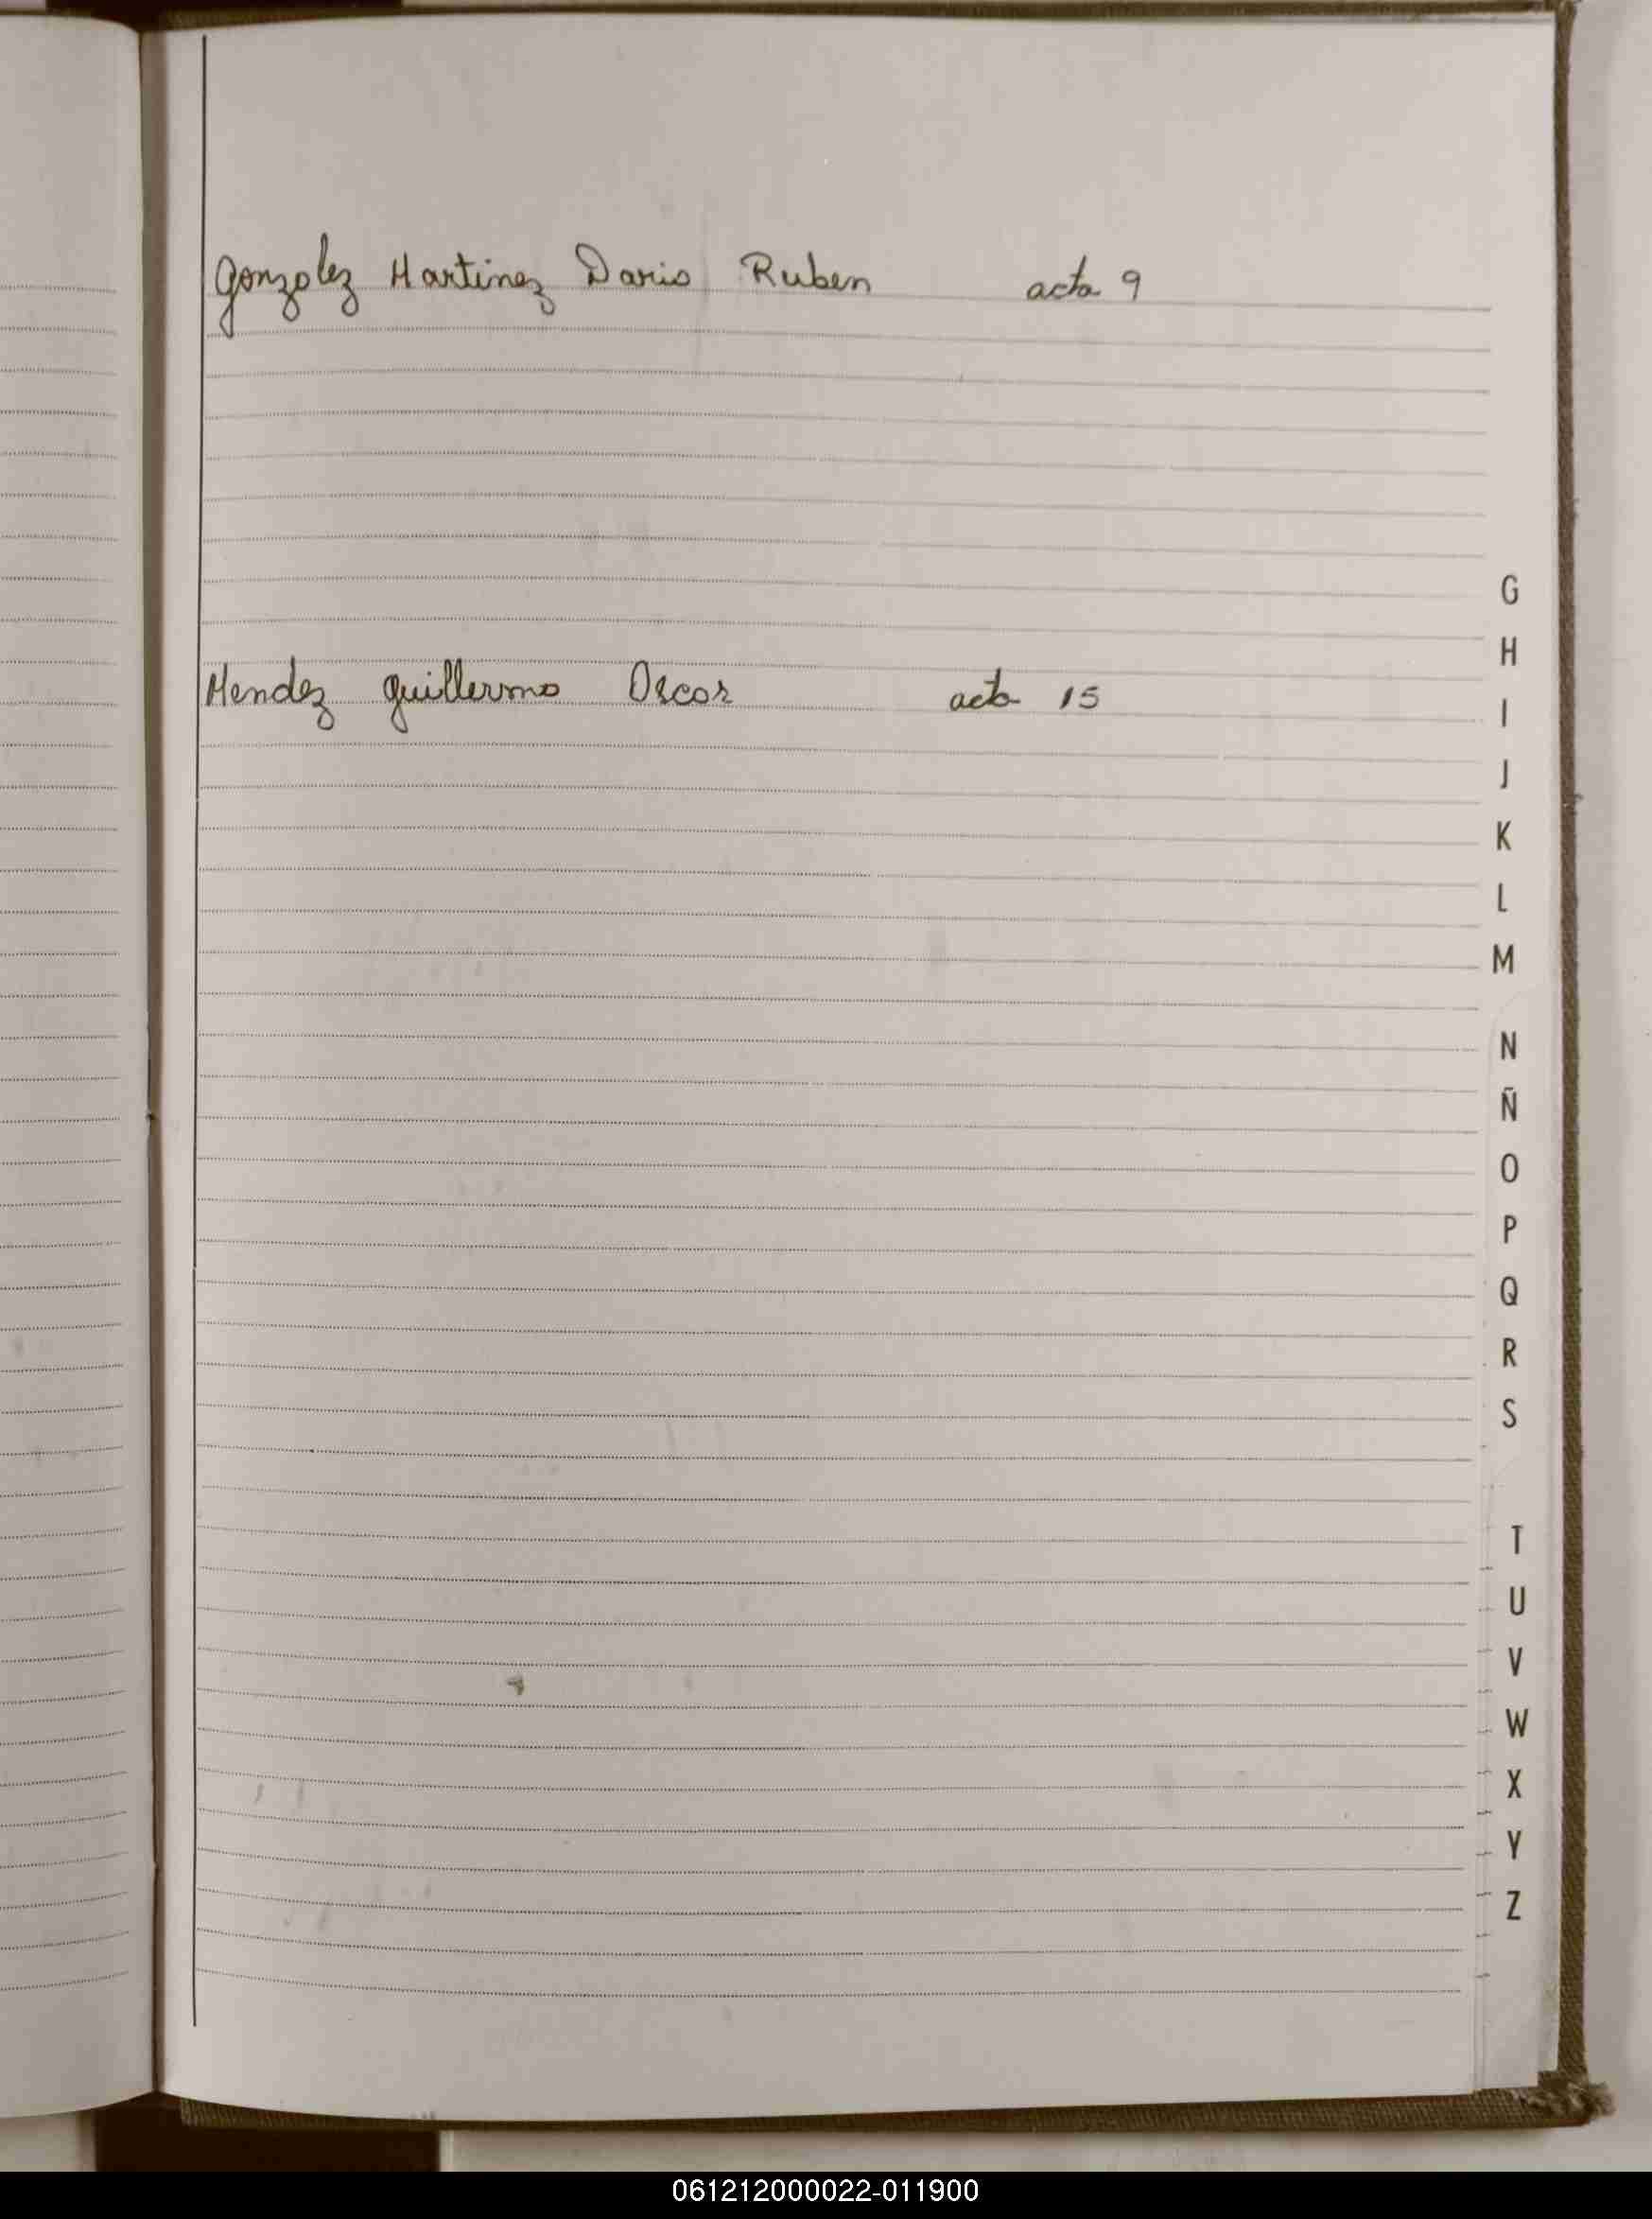 Gonzalez Martinez Dario Ruben acta 9
Mendez Guillermo Oscar acta 15
G
H
I
J
K
L
M
N
Ñ
O
P
Q
R
S
T
U
V
W
X
Y
Z
061212000022-011900